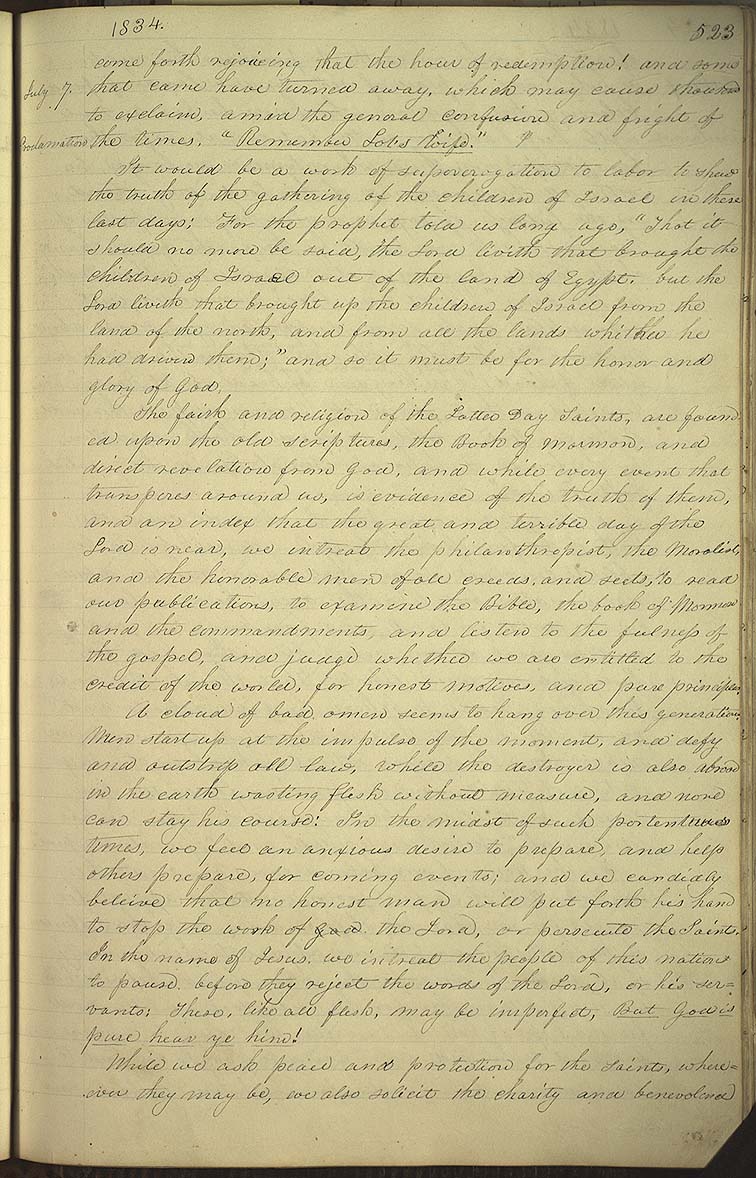 1834.
523
come forth rejoicing that the hour of redemption! and some
July 7. that came have turned away, which may cause thousands
to exclaim, amid the general confusion and fright of
Proclamation the times. "Remember Lot's Wife."
It would be a work of superverogation to labor to shew
the truth of the gathering of the children of Israel in these
last days; For the prophet told us long ago, "That it
should no more be said, the Lord liveth that brought the
children of Israel out of the land of Egypt. but the
Lord liveth that brought up the children of Israel from the
land of the north, and from all the lands whither he
had driven them;" and so it must be for the honor and
glory of God.
The faith and religion of the Latter Day Saints, are found
ed upon the old scriptures, the Book of Mormon, and
direct revelation from God, and while every event that
transpires around us, is evidence of the truth of them,
and an index that the great and terrible day of the
Lord is near, we intreat the philanthropist, the Moralist,
and the honorable men of all creeds, and sects, to read
our publications, to examine the Bible, the book of Mormon
and the commandments, and listen to the fulness of
the gospel, and judge whether we are entitled to the
credit of the world, for honest motives, and pure principles.
A cloud of bad omen seems to hang over this generation.
Men start up at the impulse of the moment, and defy
and outstrip all law, while the destroyer is also abroad
in the earth wasting flesh without measure, and none
can stay his course! In the midst of such portentous
times, we feel an anxious desire to prepare, and help
others prepare, for coming events; and we candidly
beleive that no honest man will put forth his hand
to stop the work of God the Lord, or persecute the Saints.
In the name of Jesus. we intreat the people of this nation
to pause. before they reject the words of the Lord, or his ser=
vants: These, like all flesh, may be imperfect, But God is
pure hear ye him!
While we ask peace and protection for the saints, where=
ever they may be, we also solicit the charity and benevolence